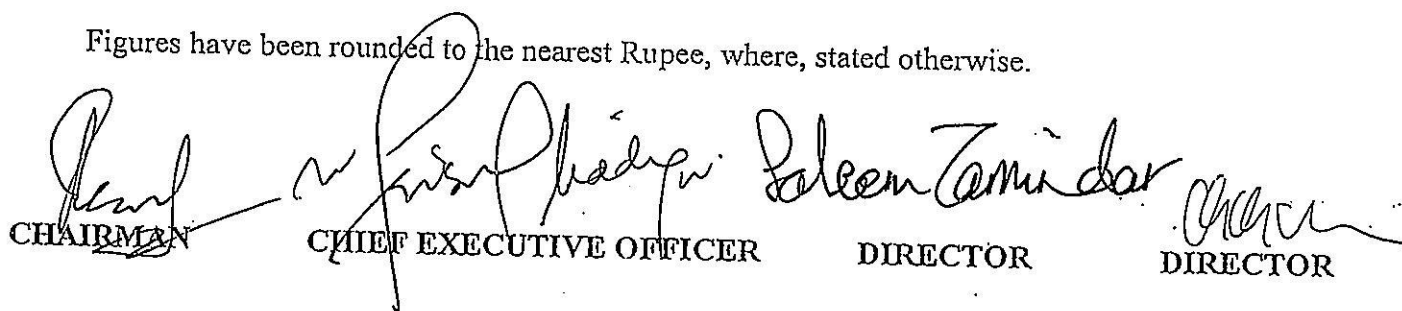 Figures have been rounded to the nearest Rupee, where, stated otherwise.
Saleem Zamindar
CHAIRMAN CHIEF EXECUTIVE OFFICER DIRECTOR DIRECTOR